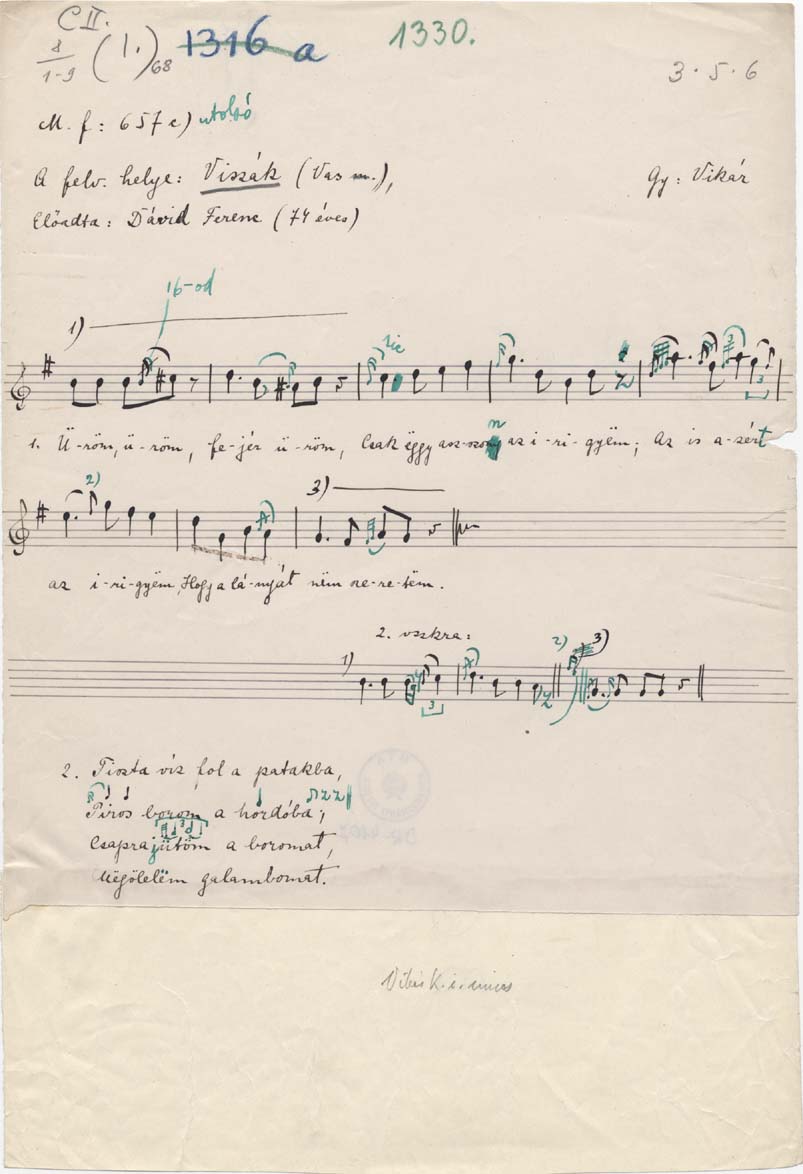 C II.
8/1-9 (I.)68 1316 a 1330.
3 · 5 · 6
M. f: 657 c) utolsó
A felv. helye: Viszák (Vas m.), Gy: Vikár
Előadta: Dávid Ferenc (74 éves)
16-od
1)
sic
3
1. Ü-röm, ü-röm, fe-jér ü-röm, Csak ëggy asz-szony az i-ri-gyëm; Az is a-zért
n
2) 3)
az i-ri-gyëm, Hogy a lá-nyát nëm sze-re-tëm.
2. vszkra:
1) 2) 3)
3
2. Tiszta víz fol a patakba,
Piros borom a hordóba;
3
Csapra jütöm a boromat,
Mëgölelëm galambomat.